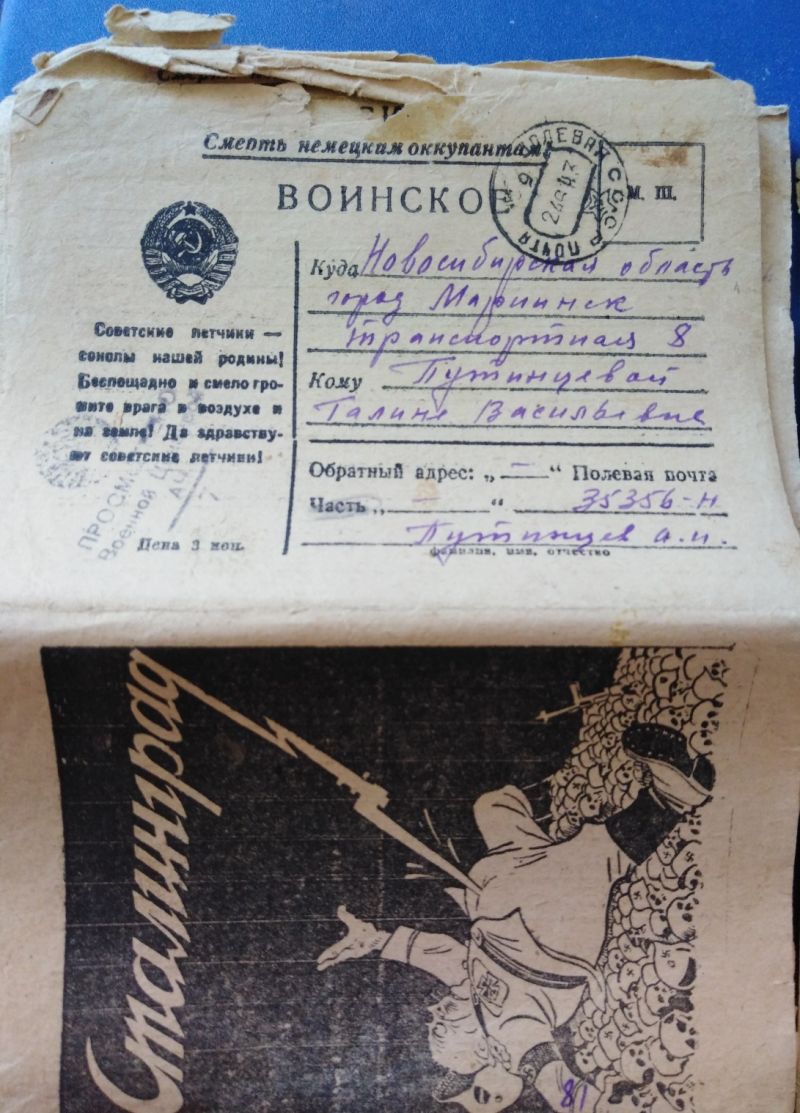 Смерть немецким оккупантам!
ВОИНСКОЕ
М. Ш.
ПОЛЕВАЯ ПОЧТА СССР
Куда Новосибирская область
город Мариинск
Транспортная 8
Кому Путинцевой
Галине Васильевне
Советские летчики —
соколы нашей родины!
Беспощадно и смело гро-
мите врага в воздухе и
на земле! Да здравству-
ют советские летчики!
ПРОСМОТРЕНО
Военной Цензурой
Цена 3 коп.
Обратный адрес: „—“ Полевая почта
Часть „—“ 35356-Н
Путинцев А.И.
фамилия, имя, отчество
Сталинград
81